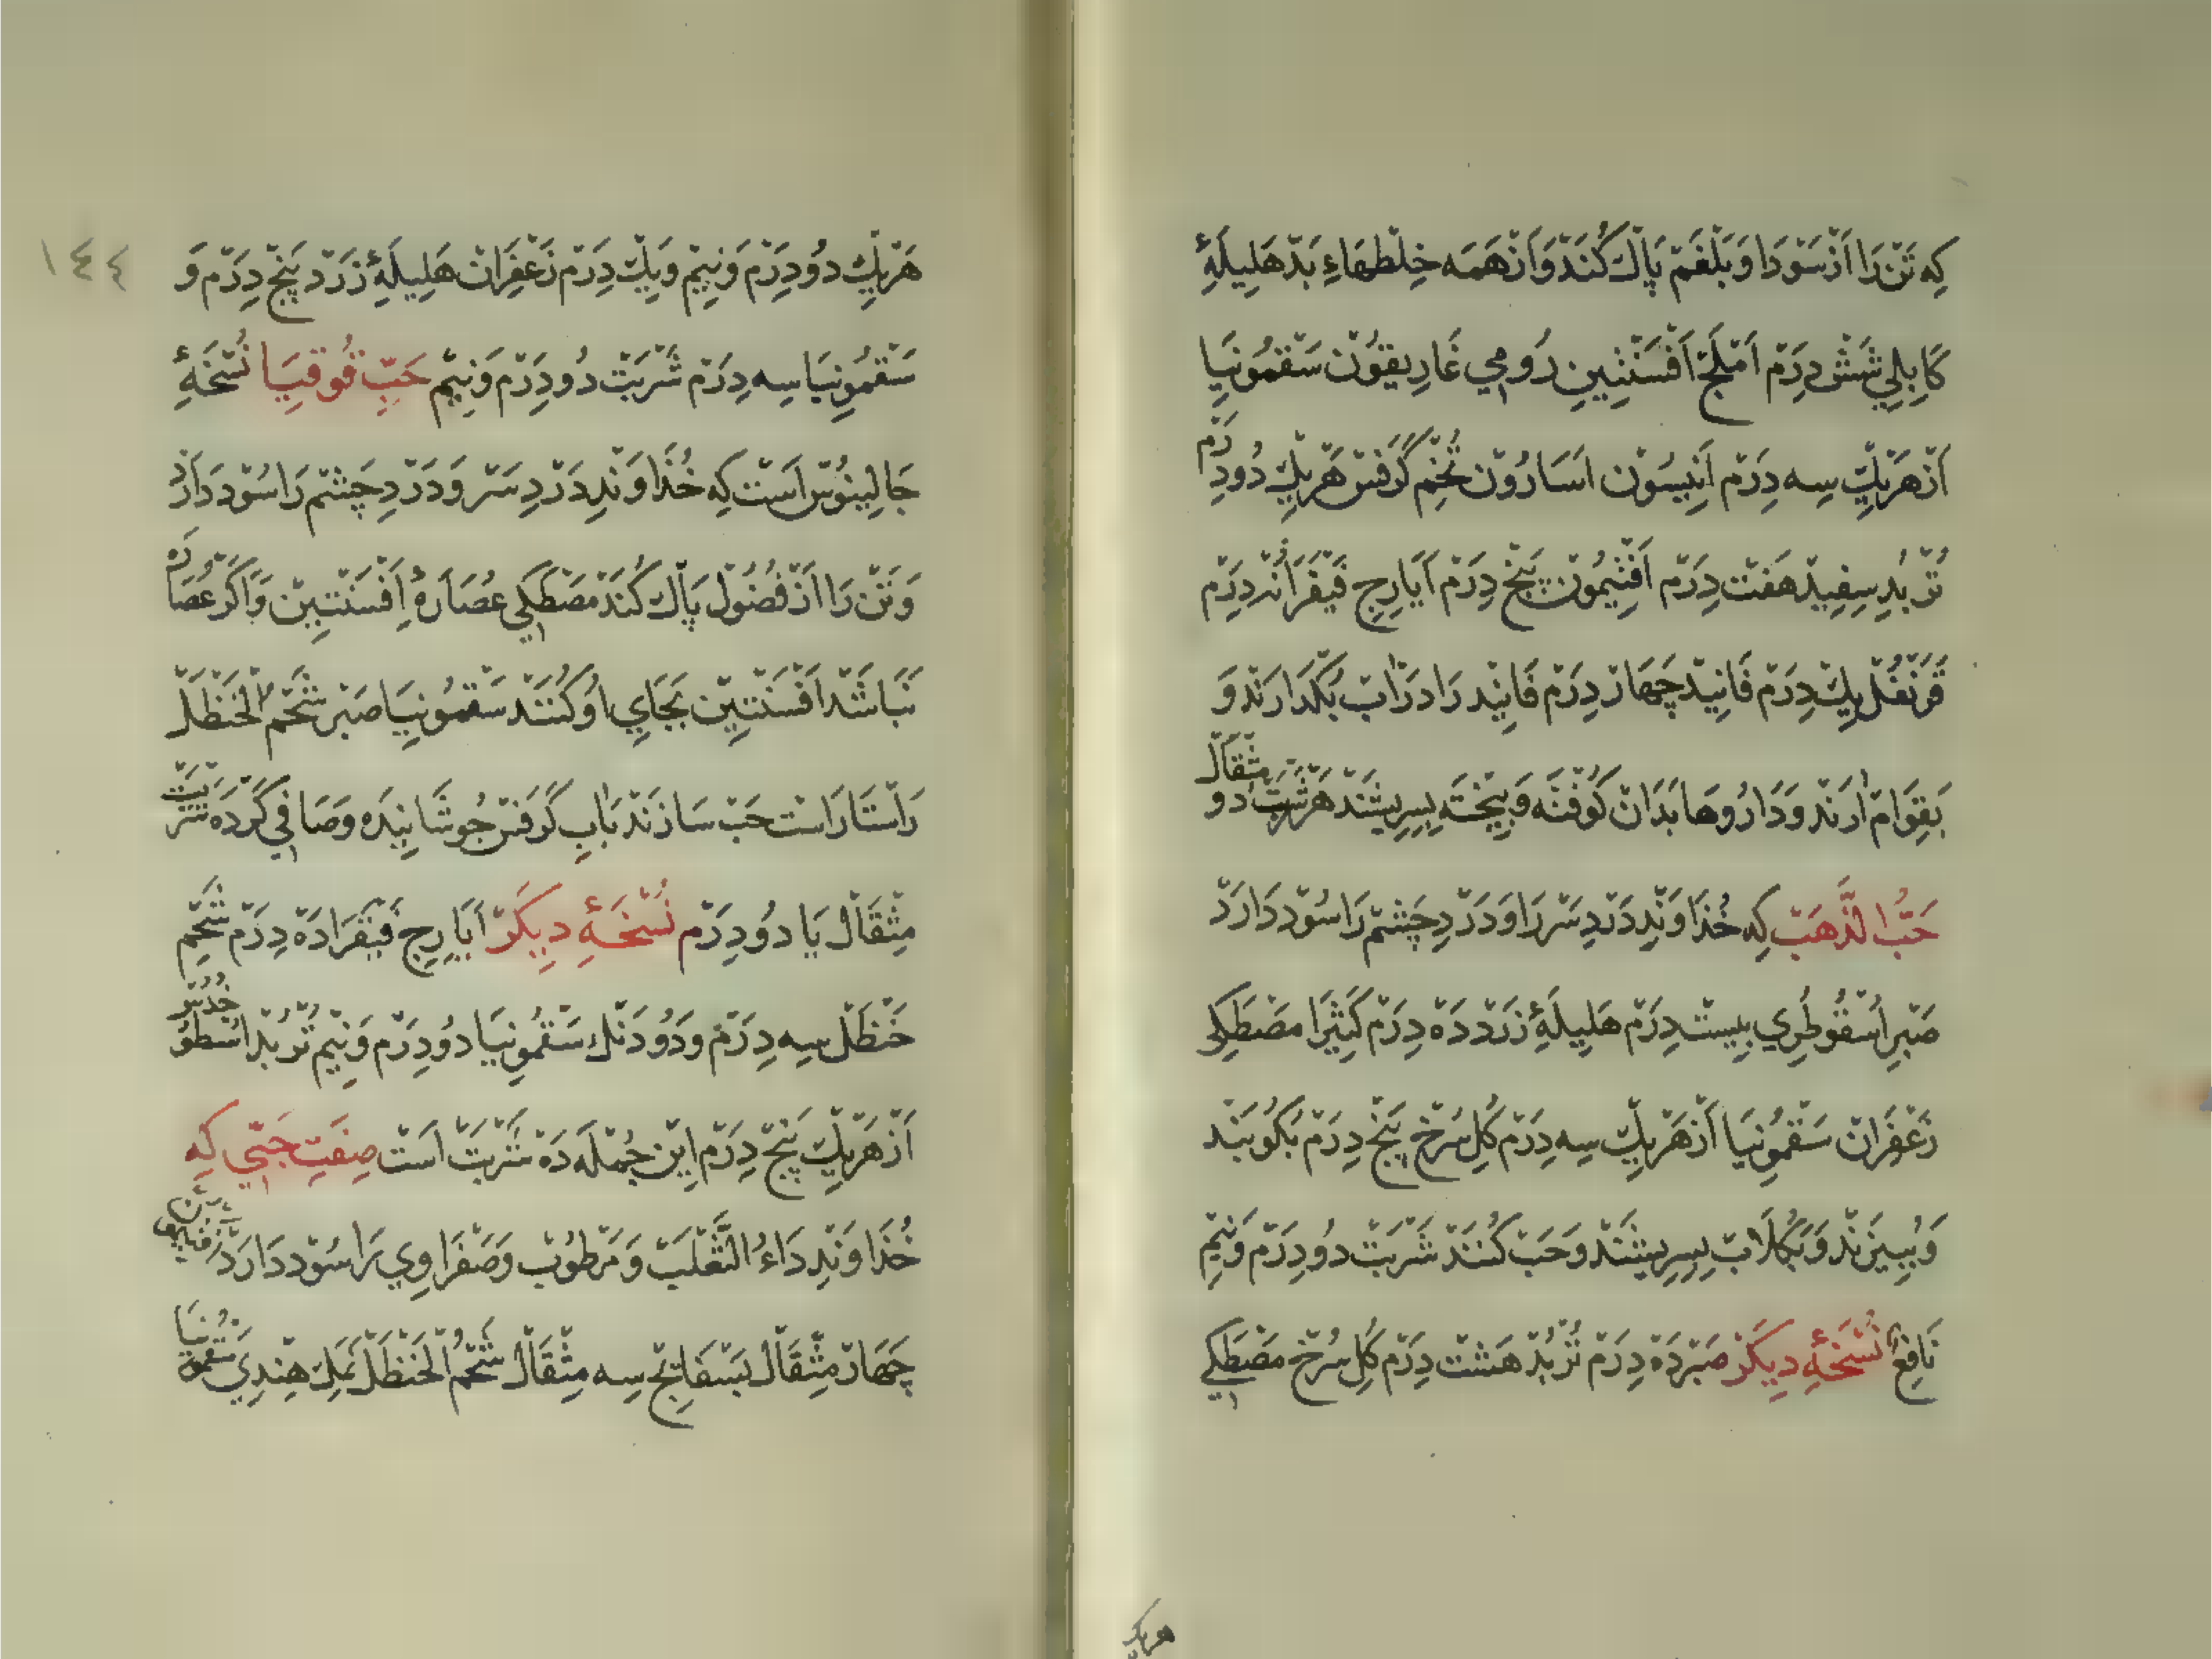 كِه تَنْ رَا اَزْ سَوْدَا وَ بَلْغَمْ پَاكْ كُنَدْ وَ اَزْ هَمَه خِلْطهَاءِ بَدْ هَلِيلَهٔ
كَابِلِي شَشْ دِرَمْ اَمْلَجْ اَفْسَنْتِينِ رُومِي غَارِيقُونْ سَقْمُونِيَا
اَزْ هَرْيِكْ سِه دِرَمْ اَنِيسُونْ اَسَارُونْ تُخْمِ كَرَفْسْ هَرْيِكْ دُو دِرَمْ
تُرْبُدِ سِفِيدْ هَفْت دِرَمْ اَفْتِيمُونْ پَنْج دِرَمْ اَيَارِجِ فَيْقَرَا نُه دِرَمْ
قَرَنْفُلْ يِكْ دِرَمْ فَانِيدْ چَهَارْ دِرَمْ فَانِيْد رَا دَرْ آبْ بُكْدَارَنْد وَ
بَقِوَامْ آرَنْد وَ دَارُوهَا بَدَانْ كُوفْتَه وَ بِيخْتَه بِسِرِيشَنْد هَرْ شَرْبَتْ دو مثْقَالْ
حَبُّ الذَّهَبْ كِه خُدَاوَنْدِ دَرْدِ سَرْ رَا وَ دَرْدِ چَشْمْ رَا سُوْد دَارَدْ
صَبْرِ اُسْقُوطْرِي بِيسْت دِرَمْ هَلِيلَهٔ زَرْد دَهْ دِرَمْ كَثِيْرَا مَصْطَكِي
زَعْفَرَانْ سَقْمُونِيَا اَزْ هَرْيِكْ سِه دِرَمْ كُلِ سُرْخ پَنْج دِرَمْ بُكُوبَنْد
وَ بِبِيزَنْد وَ بَكُلَابْ بِسِرِيشَنْد وَ حَبْ كُنَنْد شَرْبَتْ دُو دِرَمْ وَ نِيمْ
نَافِعْ نُسْخَهٔ دِيكَرْ صَبْر دَهْ دِرَمْ تُرْبُدْ هَشْت دِرَمْ كُلِ سُرْخ مَصْطَكِي
هريك
١٤٤
هَرْيِكْ دُو دِرَمْ وَ نِيمْ وَ يِكْ دِرَمْ زَعْفِرَانْ هَلِيلَهٔ زَرْد پَنْج دِرَمْ وَ
سَقْمُونِيَا سِه دِرَمْ شَرْبَتْ دُو دِرَمْ وَ نِيمْ حَبِّ قُوقِيَا نُسْخَهٔ
جَالِينُوسْ اَسْت كِه خُدَاوَنْدِ دَرْدِ سَرْ وَ دَرْدِ چَشْمْ رَا سُوْد دَارَدْ
وَ تَنْ رَا اَزْ فُضُولْ پَاكْ كُنَدْ مَصْطَكِي عُصَارَهٔ اَفْسَنْتِينْ وَ اَكَرْ عُصَارَه
نَبَاشَدْ اَفْسَنْتِينْ بَجَايِ اُو كُنَنْد سَقْمُونِيَا صَبْر شَحْمُ الْحَنْظَلْ
رَاسْتَارَاسْت حَبْ سَازَنْد بَابِ كَرَفْس جُوشَانِيدَه وَ صَافِي كَرْدَه شَرْبَتْ
مِثْقَالْ يَا دُو دِرَمْ نُسْخَهٔ دِيكَرْ اَيَارِجِ فَيْقَرَا دَهْ دِرَمْ شَحْمِ
حَنْظَلْ سِه دِرَمْ وَ دُو دَنْك سَقْمُونِيَا دُو دِرَمْ وَ نِيمْ تُرْبُدْ اُسْطُوخُدُّوسْ
اَزْ هَرْيِكْ پَنْج دِرَمْ اِيْن جُمْلَه دَهْ شَرْبَتْ اَسْت صِفَتِ حَبِّي كِه
خُدَاوَنْدِ دَاءُ الثَّعْلَبْ وَ مَرْطُوبْ وَ صَفْرَاوِي رَا سُوْد دَارَدْ
چَهَارْ مِثْقَالْ بَسْفَايَجْ سِه مِثْقَالْ شَحْمُ الْحَنْظَلْ نَمَكِ هِنْدِي سَقْمُونِيَا